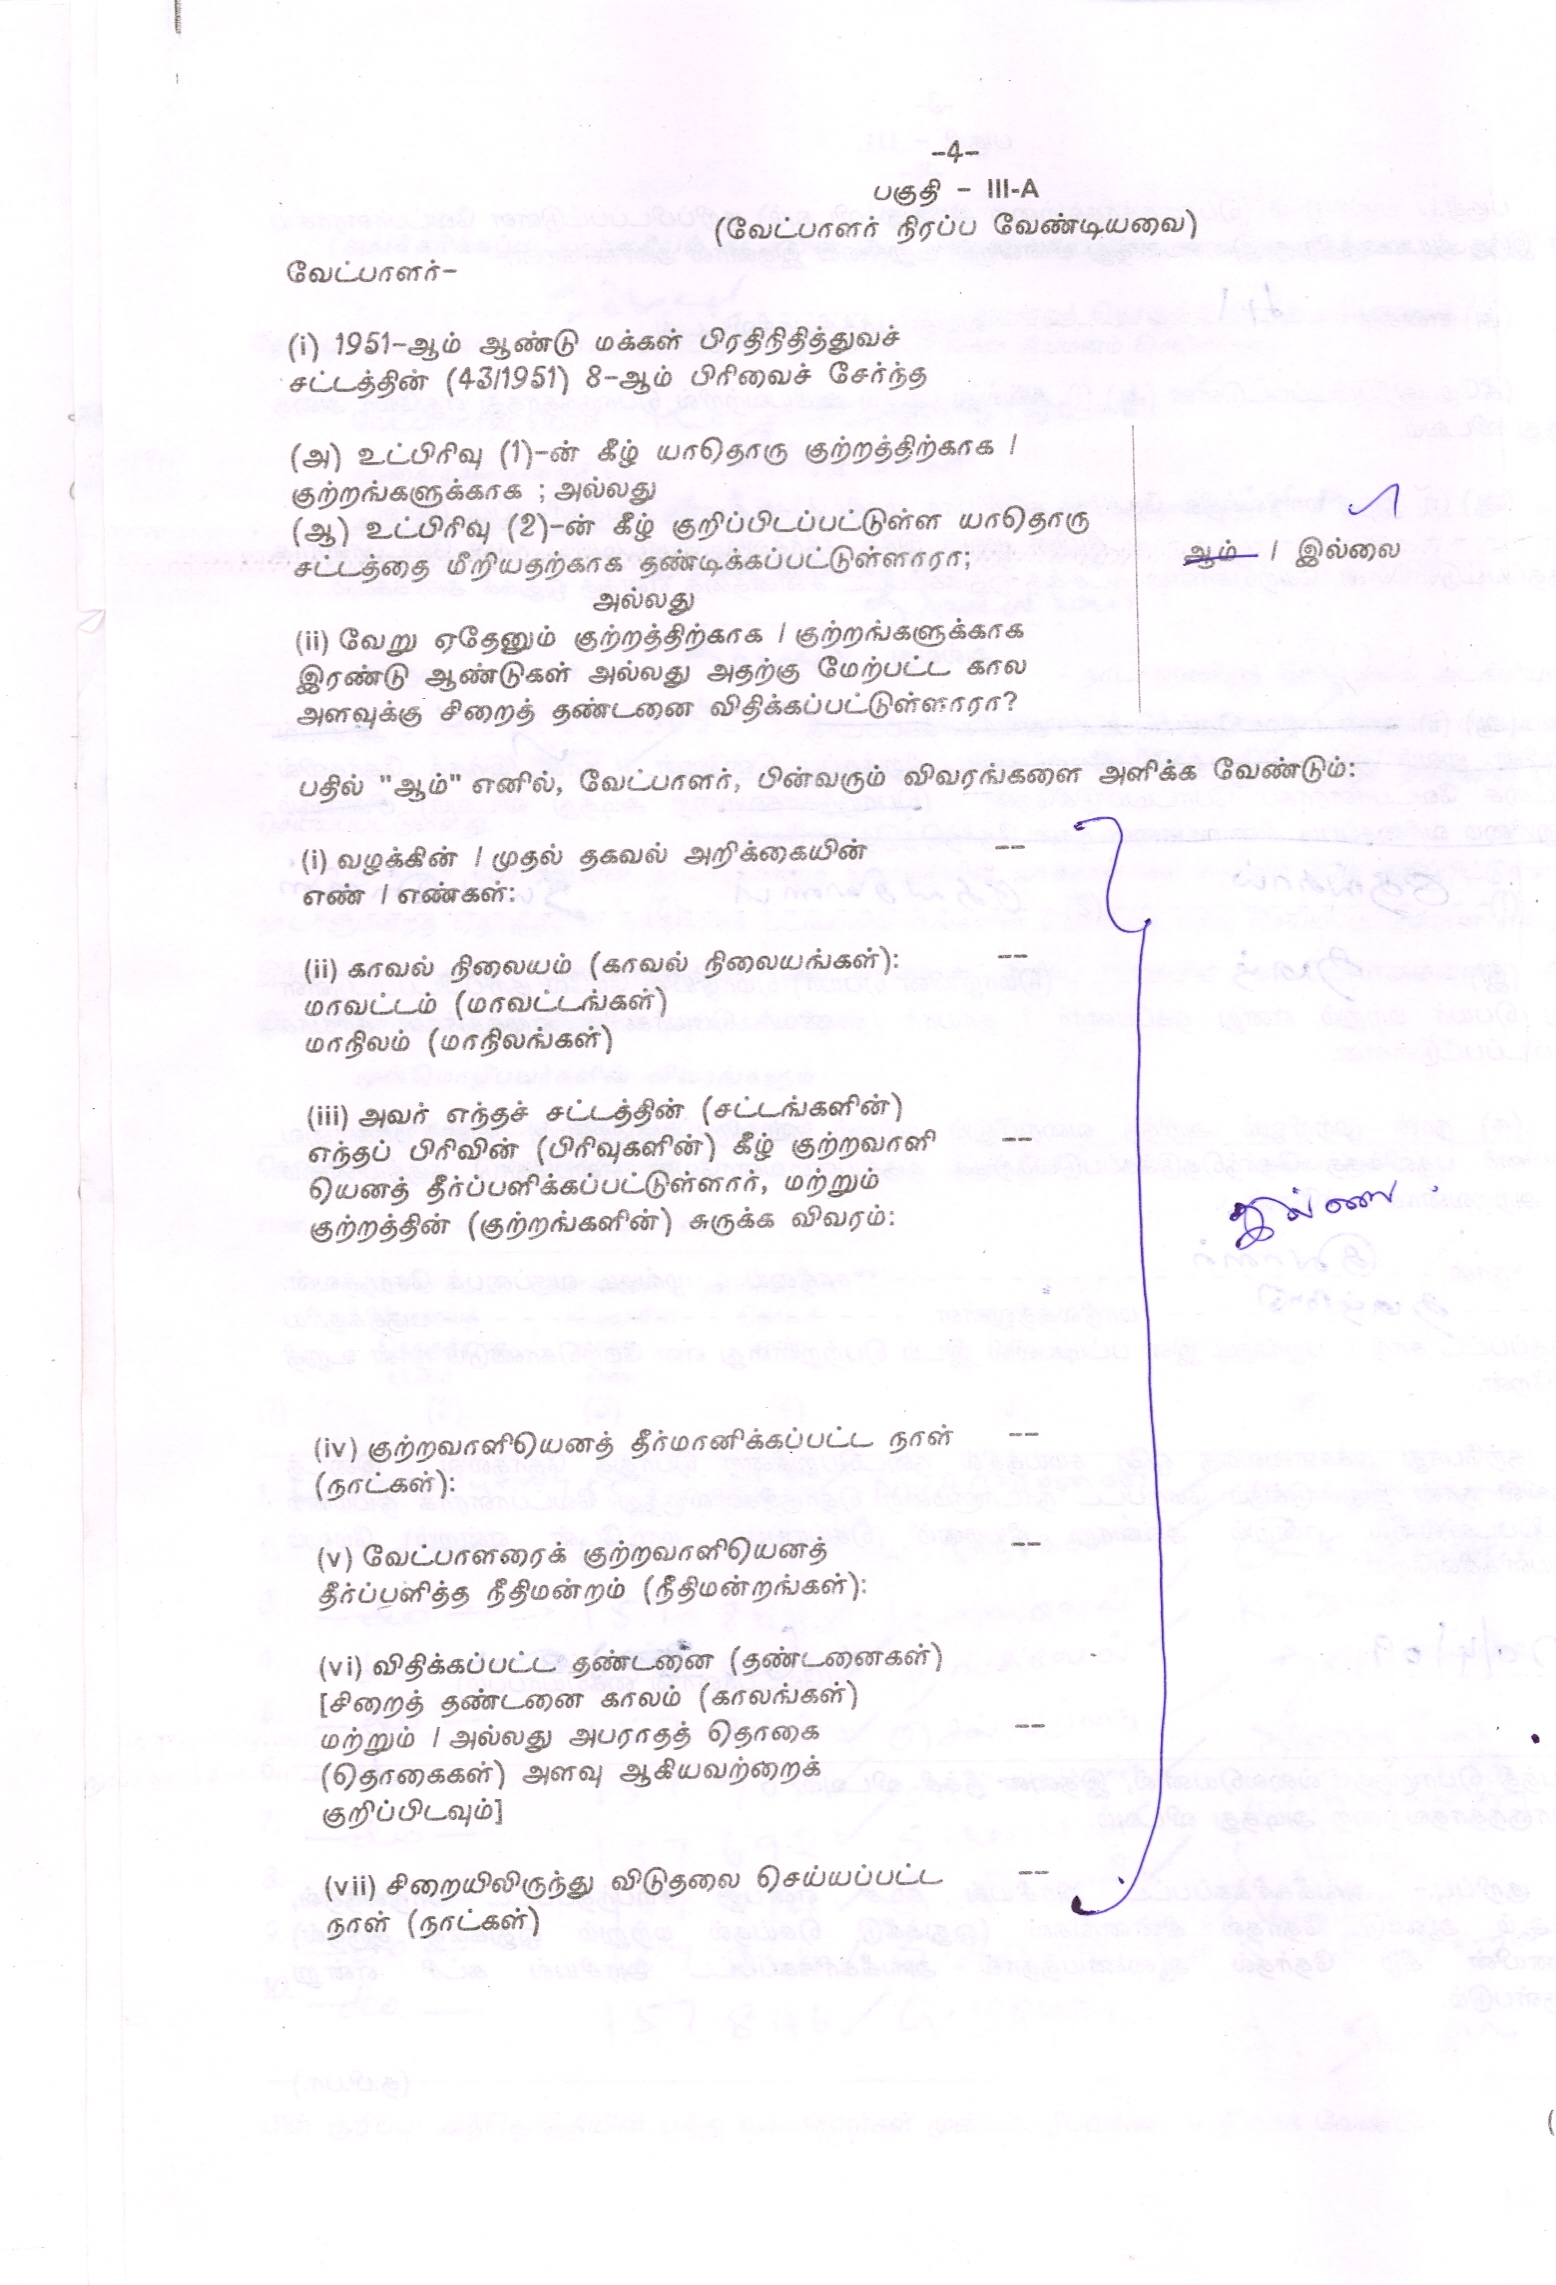 -4-
பகுதி - III-A
(வேட்பாளர் நிரப்ப வேண்டியவை)
வேட்பாளர்-
(i) 1951-ஆம் ஆண்டு மக்கள் பிரதிநிதித்துவச்
சட்டத்தின் (43/1951) 8-ஆம் பிரிவைச் சேர்ந்த
(அ) உட்பிரிவு (1)-ன் கீழ் யாதொரு குற்றத்திற்காக /
குற்றங்களுக்காக ; அல்லது
(ஆ) உட்பிரிவு (2)-ன் கீழ் குறிப்பிடப்பட்டுள்ள யாதொரு
சட்டத்தை மீறியதற்காக தண்டிக்கப்பட்டுள்ளாரா; ஆம் / இல்லை
அல்லது
(ii) வேறு ஏதேனும் குற்றத்திற்காக / குற்றங்களுக்காக
இரண்டு ஆண்டுகள் அல்லது அதற்கு மேற்பட்ட கால
அளவுக்கு சிறைத் தண்டனை விதிக்கப்பட்டுள்ளாரா?
பதில் "ஆம்" எனில், வேட்பாளர், பின்வரும் விவரங்களை அளிக்க வேண்டும்:
(i) வழக்கின் / முதல் தகவல் அறிக்கையின் --
எண் / எண்கள்:
(ii) காவல் நிலையம் (காவல் நிலையங்கள்): --
மாவட்டம் (மாவட்டங்கள்)
மாநிலம் (மாநிலங்கள்)
(iii) அவர் எந்தச் சட்டத்தின் (சட்டங்களின்)
எந்தப் பிரிவின் (பிரிவுகளின்) கீழ் குற்றவாளி --
யெனத் தீர்ப்பளிக்கப்பட்டுள்ளார், மற்றும்
குற்றத்தின் (குற்றங்களின்) சுருக்க விவரம்:
இல்லை
(iv) குற்றவாளியெனத் தீர்மானிக்கப்பட்ட நாள் --
(நாட்கள்):
(v) வேட்பாளரைக் குற்றவாளியெனத் --
தீர்ப்பளித்த நீதிமன்றம் (நீதிமன்றங்கள்):
(vi) விதிக்கப்பட்ட தண்டனை (தண்டனைகள்)
[சிறைத் தண்டனை காலம் (காலங்கள்)
மற்றும் / அல்லது அபராதத் தொகை --
(தொகைகள்) அளவு ஆகியவற்றைக்
குறிப்பிடவும்]
(vii) சிறையிலிருந்து விடுதலை செய்யப்பட்ட --
நாள் (நாட்கள்)